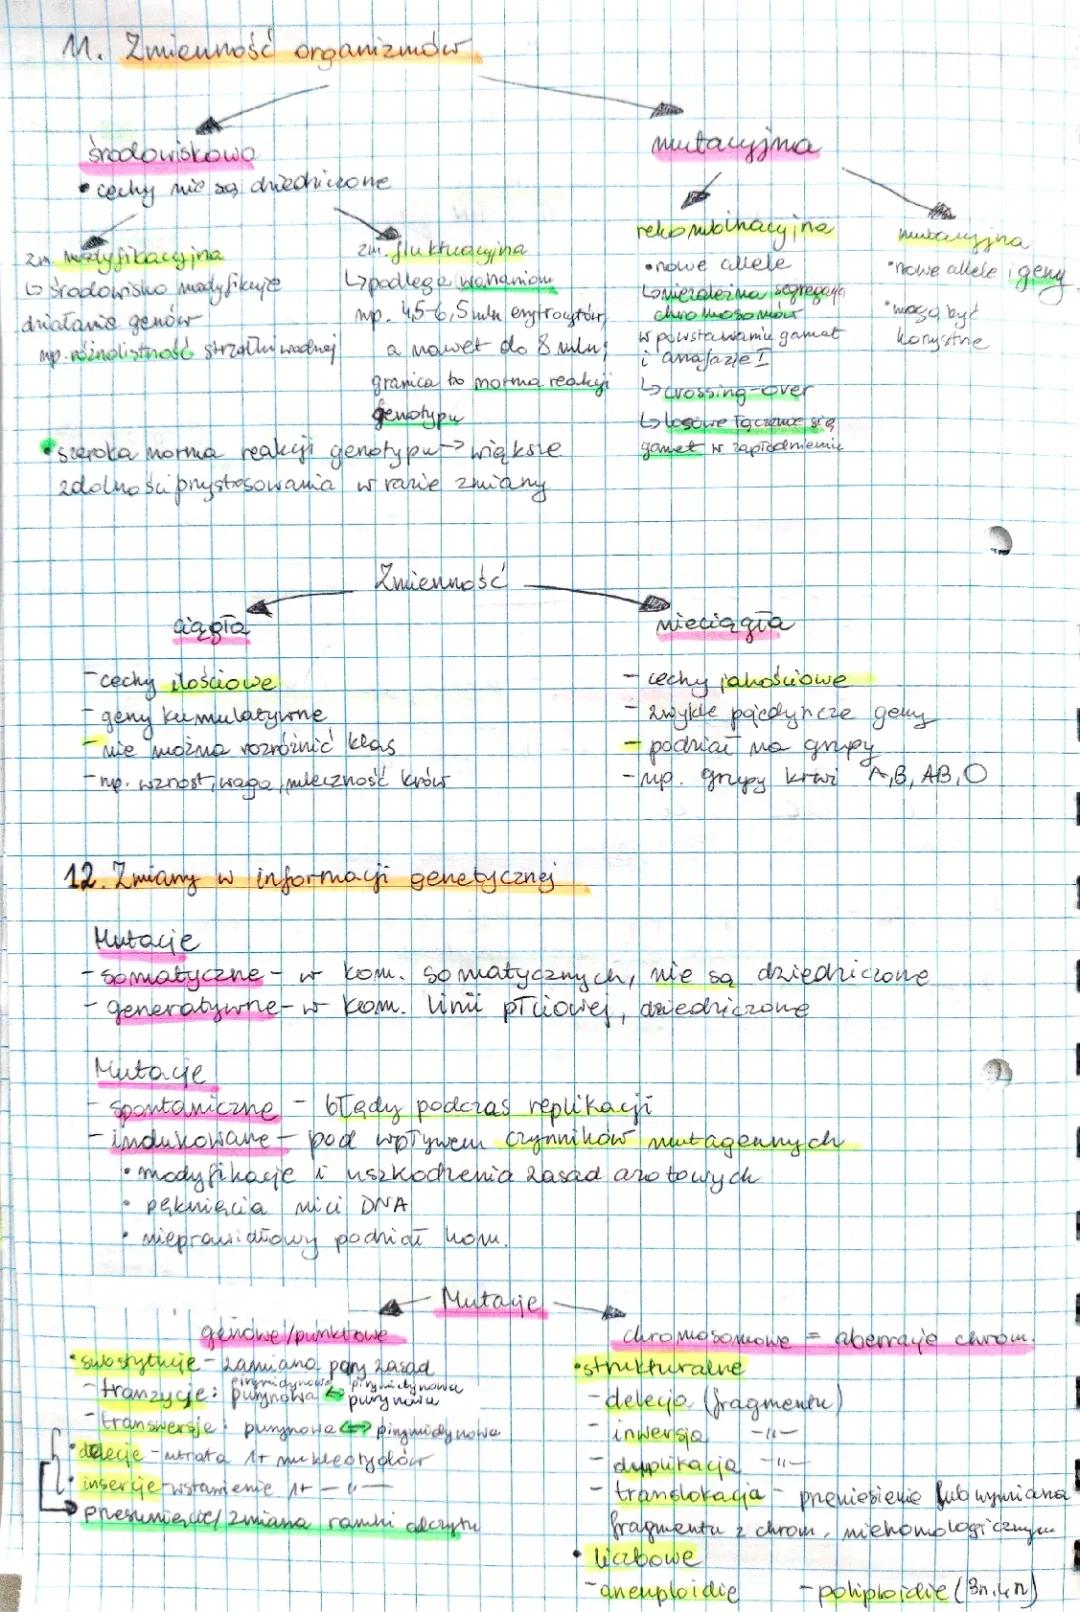 11. Zmienność organizmów
środowiskowa
• cechy nie są dziedziczone
zm. modyfikacyjna
↳ środowisko modyfikuje
działanie genów
np. różnolistność strzałki wodnej
zm. fluktuacyjna
↳ podlega wahaniom
np. 4,5-6,5 mln erytrocytów,
a nawet do 8 mln;
granica to norma reakcji
genotypu
• szeroka norma reakcji genotypu → większe
zdolności przystosowania w razie zmiany
mutacyjna
rekombinacyjna
• nowe allele
↳ niezależna segregacja
chromosomów
w powstawaniu gamet
i anafazie I
↳ crossing-over
↳ losowe łączenie się
gamet w zapłodnieniu
mutacyjna
• nowe allele i geny
• mogą być
korzystne
Zmienność
ciągła
- cechy ilościowe
- geny kumulatywne
- nie można rozróżnić klas
- np. wzrost, waga, mleczność krów
nieciągła
- cechy jakościowe
- zwykle pojedyncze geny
- podział na grupy
- np. grupy krwi A, B, AB, O
12. Zmiany w informacji genetycznej
Mutacje
- somatyczne - w kom. somatycznych, nie są dziedziczone
- generatywne - w kom. linii płciowej, dziedziczone
Mutacje
- spontaniczne - błędy podczas replikacji
- indukowane - pod wpływem czynników mutagennych
• modyfikacje i uszkodzenia zasad azotowych
• pęknięcia nici DNA
• nieprawidłowy podział kom.
Mutacje
genowe/punktowe
• substytucje - zamiana pary zasad
- tranzycje: pirymidynowa pirymidynowa
purynowa ↔ purynowa
- transwersje: purynowa ↔ pirymidynowa
• delecje - utrata 1+ nukleotydów
• insercje - wstawienie 1+ -"-
→ przesunięcie/zmiana ramki odczytu
chromosomowe = aberracje chrom.
• strukturalne
- delecja (fragmentu)
- inwersja -"-
- duplikacja -"-
- translokacja - przeniesienie lub wymiana
fragmentu z chrom. niehomologicznym
• liczbowe
- aneuploidie - poliploidie (3n, 4n)